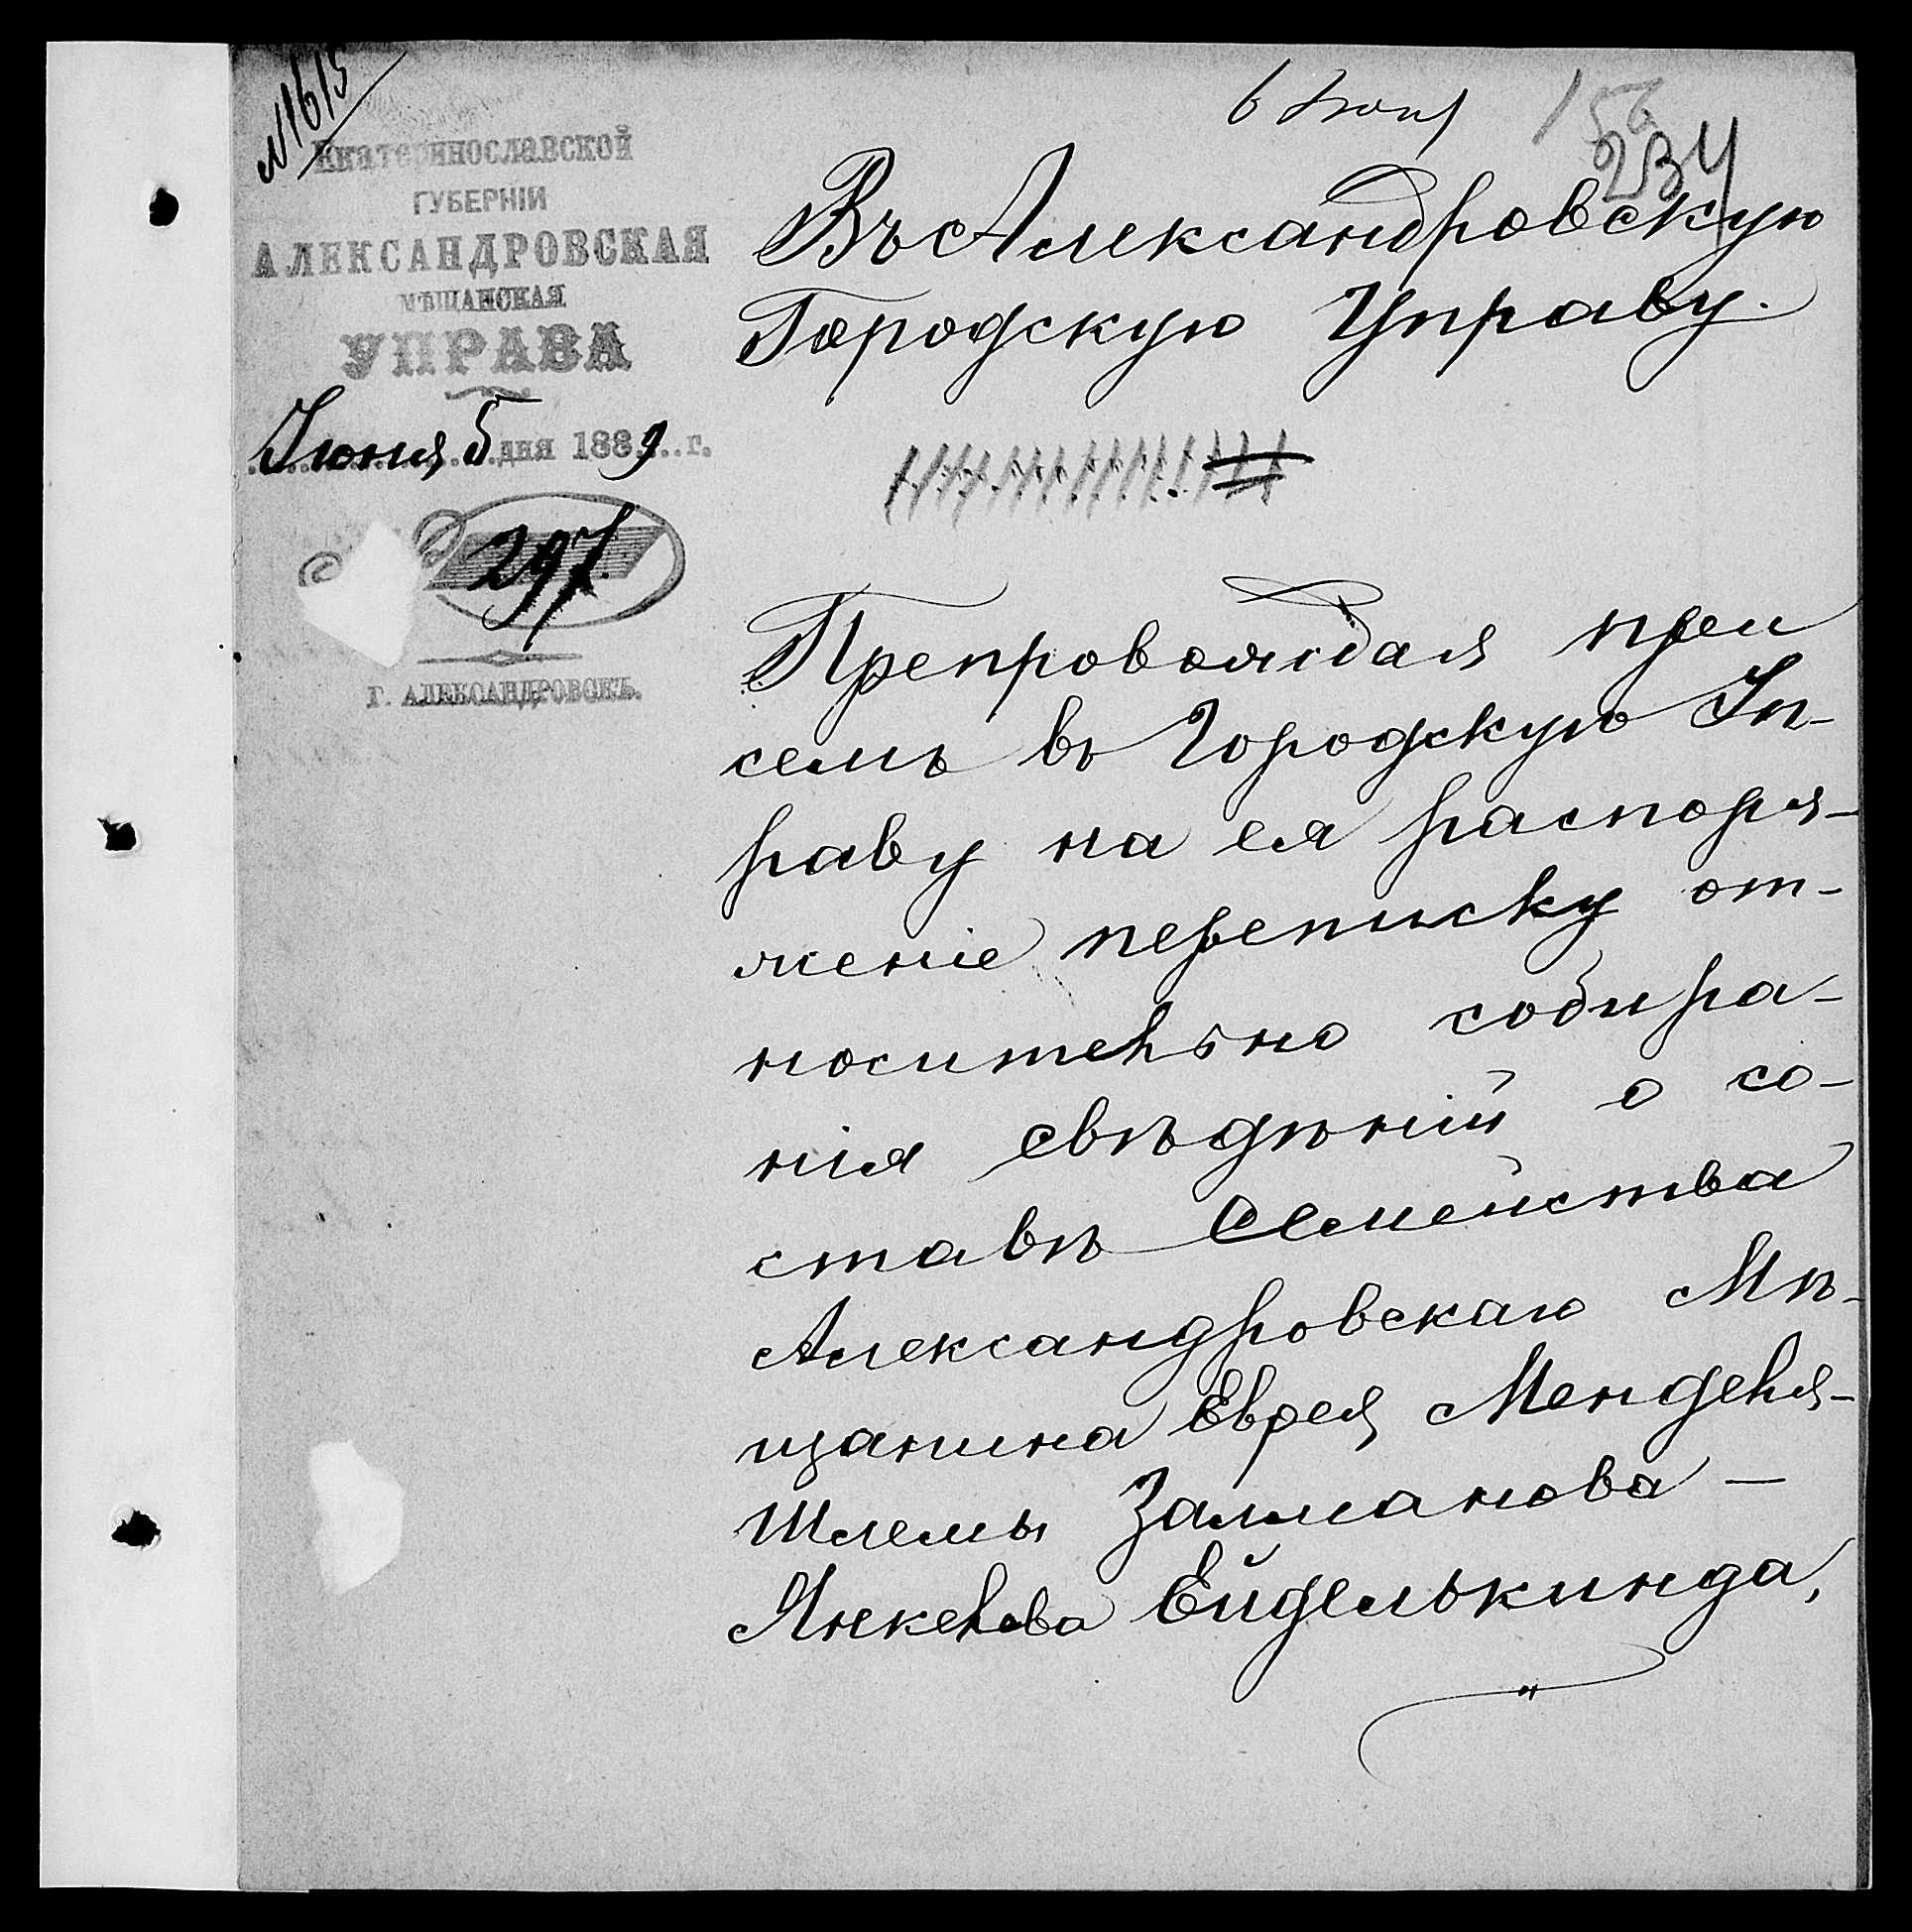 №1615
Екатеринославской
ГУБЕРНІИ
АЛЕКСАНДРОВСКАЯ
МѢЩАНСКАЯ
УПРАВА
Іюня 5 дня 1889 г.
297
Г. АЛЕКСАНДРОВСКЪ.
6 Іюня
234
Въ Александровскую
Городскую Управу.
Препровождая при
семъ въ Городскую Уп-
раву на ея распоря-
женіе переписку от-
носительно собира-
нія свѣдѣній о со-
ставѣ Семейства
Александровскаго Мѣ-
щанина Еврея Менделя-
Шлемы Залманова-
Янкелева Ейделькинда,